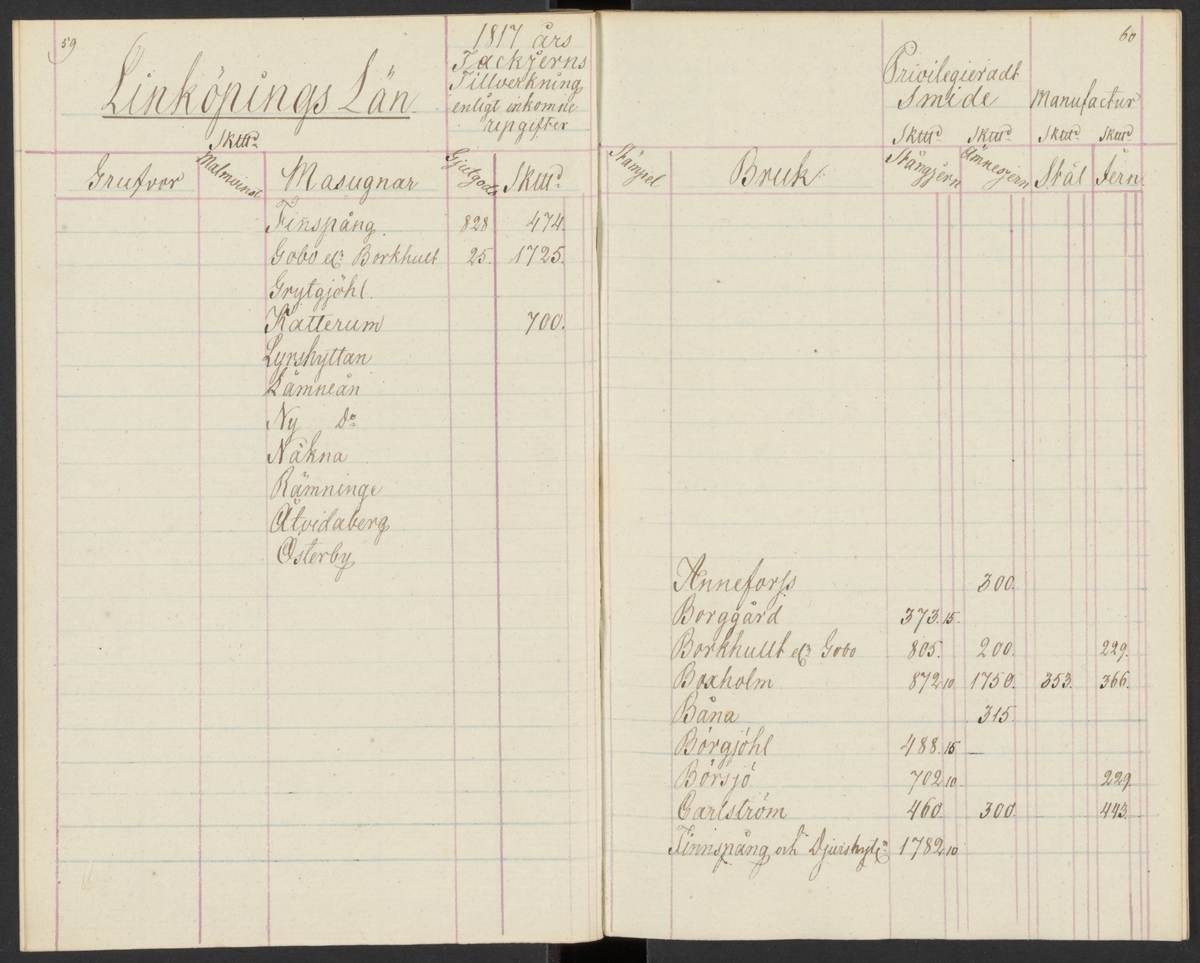 59
Linköpings Län
1817 års
Tackjerns
Tillverkning
enligt inkomne
upgifter
Skttd
Grufvor Malmvinst Masugnar Gjutgods Skttd
Finspång 828 474.
Gobo elr Borkhult 25. 1725.
Grytgjöhl.
Katterum 700.
Lyrshyttan
Lämneån
Ny Do
Näkna
Rämninge
Åtvidaberg
Österby
60
Privilegieradt
Smide Manufactur
Skttd Skttd Skttd Skttd
Stämpel Bruk. Stångjern Ämnesjern Stål Jern
Anneforss 300.
Borggård 373.15.
Borkhullt elr Gobo 805. 200. 229.
Boxholm 872.10 1750. 353. 366.
Båna 315.
Börgjöhl 488.15 —
Börsjö 702.10 229.
Carlström 460. 300. 443.
Finnspång och 1782.10